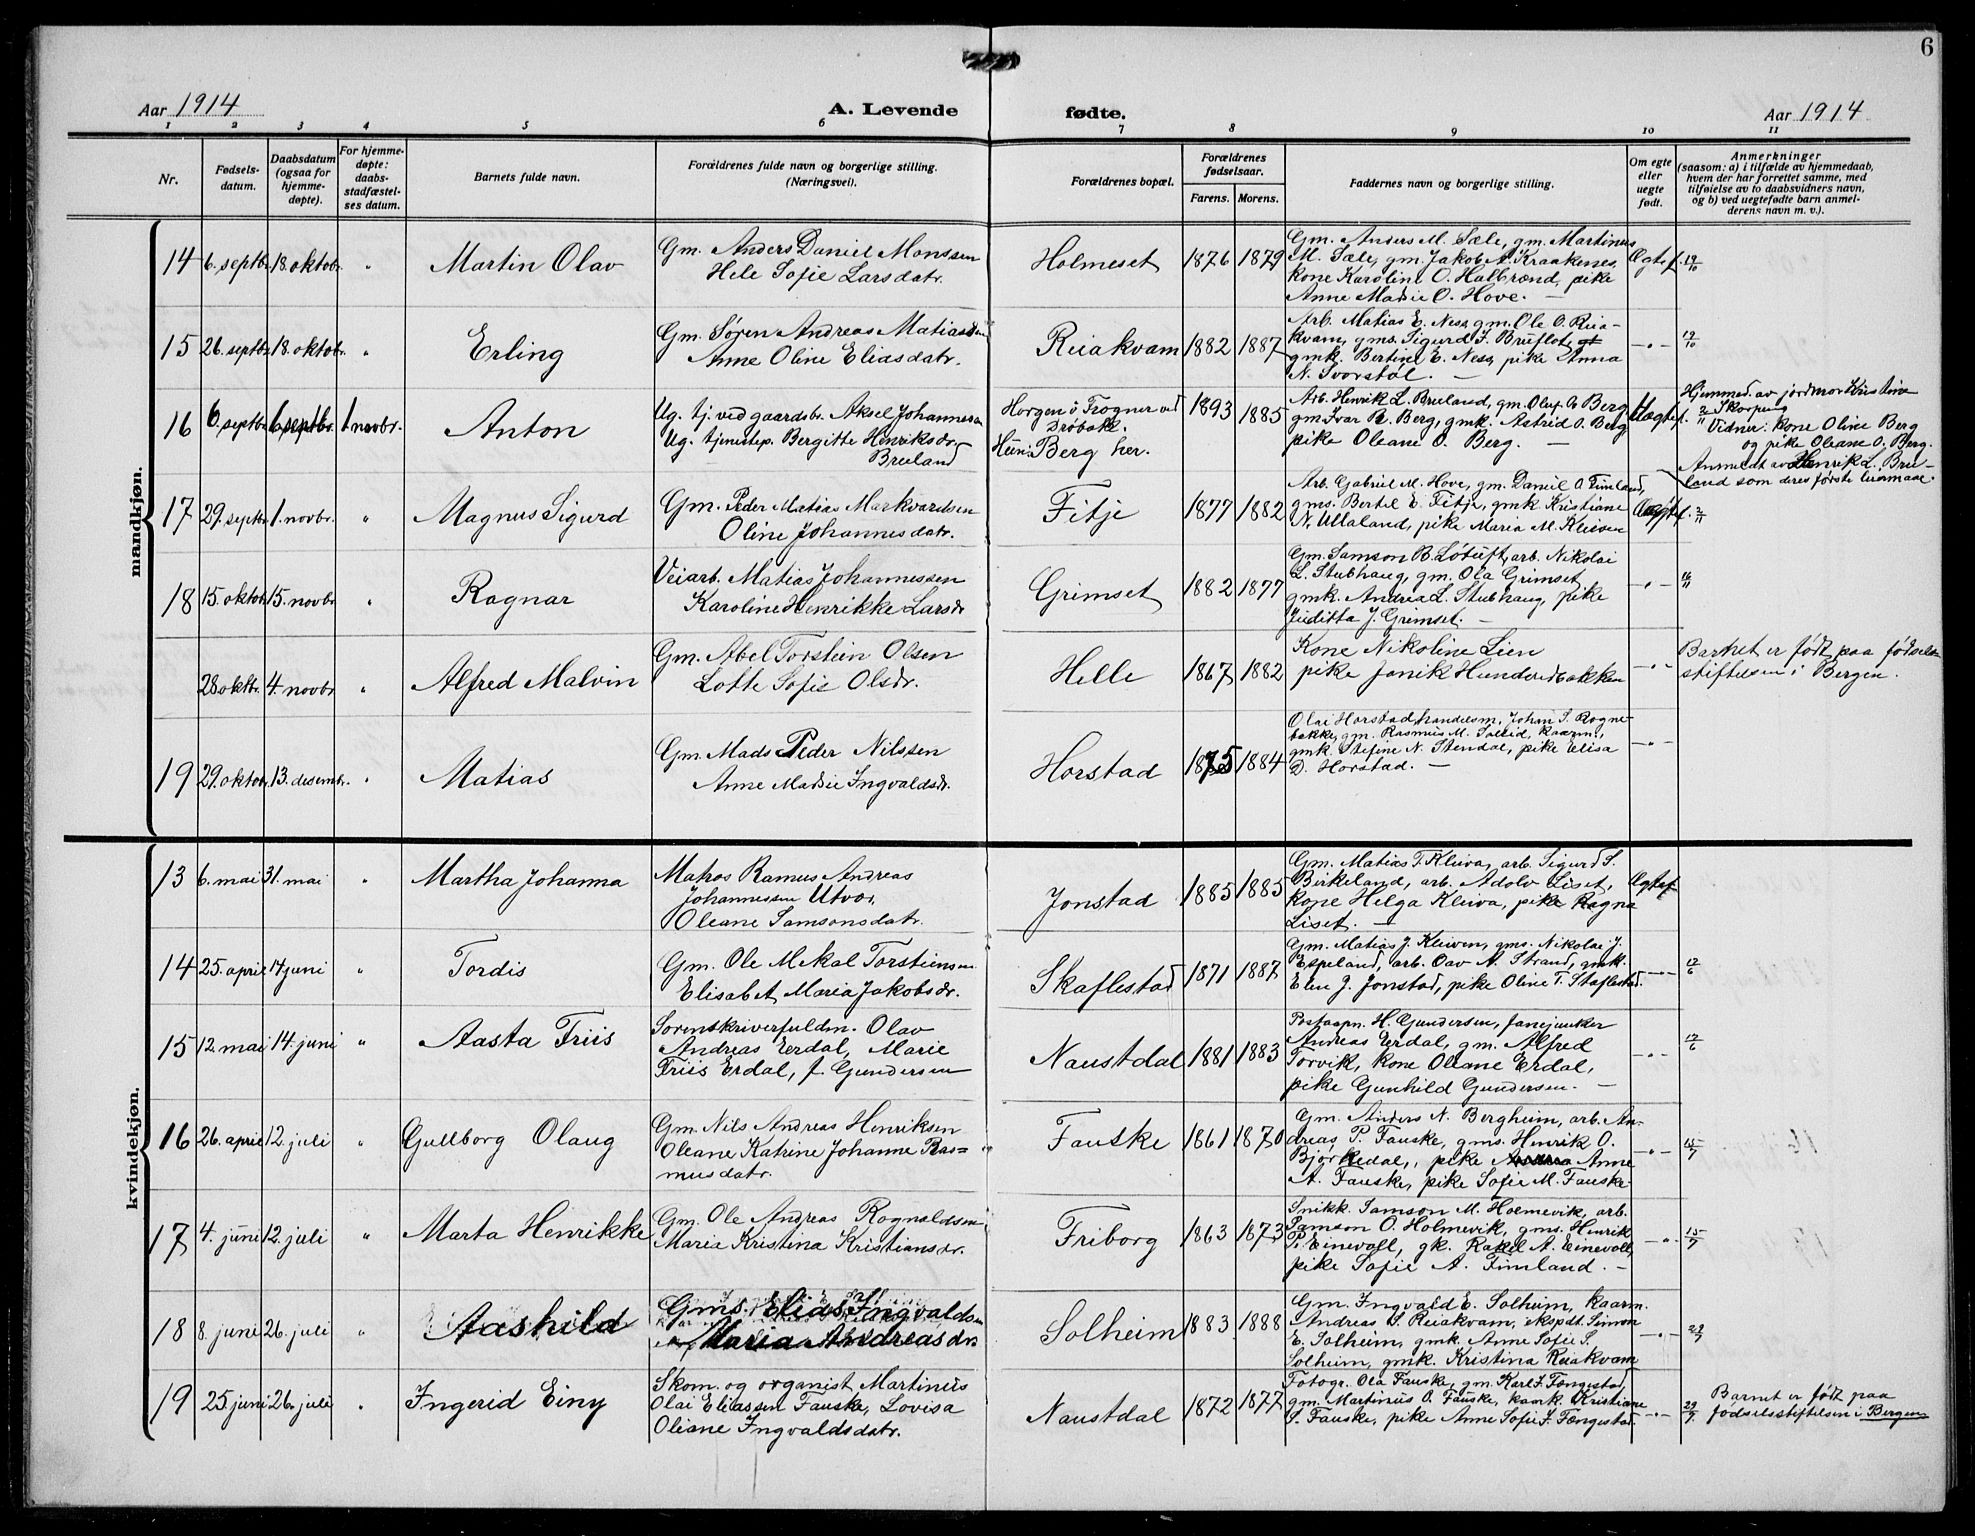 6
Aar 1914
A. Levende
fødte.
Aar 1914
1 2 3 4 5 6 7 8 9 10 11
Nr.
Fødsels-
datum.
Daabsdatum
(ogsaa for
hjemme-
døpte).
For hjemme-
døpte:
daabs-
stadfæstel-
ses datum.
Barnets fulde navn.
Forældrenes fulde navn og borgerlige stilling.
(Næringsvei).
Forældrenes bopæl.
Forældrenes
fødselsaar.
Farens. Morens.
Faddernes navn og borgerlige stilling.
Om egte
eller
uegte
født.
Anmerkninger
(saasom: a) i tilfælde av hjemmedaab,
hvem der har forrettet samme, med
tilføielse av to daabsvidners navn,
og b) ved uegtefødte barn anmel-
derens navn m. v.).
mandkjøn.
14 6. septbr. 18. oktobr. " Martin Olav
Gm. Anders Daniel Monssen
Hele Sofie Larsdatr.
Holmeset 1876 1879
Gm. Anders M. Sæle, gm. Martinus
M. Sæle, gm. Jakob A. Kraakenes,
kone Karoline O. Halbrænd, pike
Anne Marie O. Hove. —
Ægtef. 19/10
15 26. septbr. 18. oktobr. " Erling
Gm. Søren Andreas Matiassen
Anne Oline Eliasdatr.
Reiakvam 1882 1887
Arb. Matias E. Ness, gm. Ole O. Reia-
kvam, gms. Sigurd J. Bruflot,
gmk. Bertine E. Ness, pike Anna
N. Svorstøl. —
—"— 19/10
16 6. septbr. 6. septbr. 1. novbr. Anton
Ug. tj. ved gaardsbr. Aksel Johannessen
Ug. tjenestep. Bergitte Henriksdr.
Breiland
Horgen i Frogner ved
Drøbak.
Hun: Berg her.
1893 1885
Arb. Henrik L. Breiland, gm. Oluf O. Berg
gm. Ivar R. Berg, gmk. Astrid O. Berg
pike Oleane O. Berg. —
Uægtef. 2/11
Hjemmed. av jordmor Kristine
Skorpen
Vidner: kone Oline Berg
og pike Oleane O. Berg.
Anmeldt av Henrik L. Brei-
land som deres første leiermaal.
17 29. septbr. 1. novbr. " Magnus Sigurd
Gm. Peder Matias Markvardsen
Oline Johannesdatr.
Fitje 1877 1882
Arb. Gabriel M. Hove, gm. Daniel O. Fimland,
gms. Bertel E. Fitje, gmk Kristiane
N. Ullaland, pike Maria M. Kleiven
Ægtef. 2/11
18 15. oktobr. 15. novbr. " Ragnar
Veiarb. Matias Johannessen
Karoline Henrikke Larsdr.
Grimset 1882 1877
Gm. Samson B. Løtuft, arb. Nikolai
L. Stubhaug, gm. Ola Grimset,
gmk. Andrea L. Stubhaug, pike
Juditta J. Grimset. —
—"— 16/11
28. oktbr. 4. novbr. " Alfred Malvin
Gm. Abel Torstein Olsen
Lotte Sofie Olsdr.
Helle 1867 1882
Kone Nikoline Lien
pike Janik Hunderedbakken
—"—
Barnet er født paa fødsels-
stiftelsen i Bergen.
19 29. oktobr. 13. desembr. " Matias
Gm. Mads Peder Nilssen
Anne Marie Ingvaldsdr.
Horstad 1875 1884
Olai Horstad, handelsm, Johan S. Rogne-
bakke, gm. Rasmus M. Sollid, kaarm.,
gmk. Stefine N. Stendal, pike Elisa
D. Horstad. —
—"—
kvindekjøn.
13 6. mai 31. mai " Martha Johanna
Matros Ramus Andreas
Johannessen Utvor,
Oleane Samsonsdatr.
Jonstad 1885 1885
Gm. Matias T. Kleiva, arb. Sigurd S.
Birkeland, arb. Adolv Liset,
kone Helga Kleiva, pike Ragna
Liset. —
Ægtef
14 25. april 14 juni " Tordis
Gm. Ole Mekal Torstiensen
Elisabet Maria Jakobsdr.
Skaflestad 1871 1887
Gm. Matias J. Kleiven, gms. Nikolai J.
Espeland, arb. Oav N. Strand, gmk.
Elen J. Jonstad, pike Oline T. Staflestad.
—"— 17/6
15 12. mai 14. juni " Aasta Friis
Sorenskriverfuldm. Olav
Andreas Erdal, Marie
Friis Erdal, f. Gundersen
Naustdal 1881 1883
Postaapn. H. Gundersen, fanejunker
Andreas Erdal, gm. Alfred
Torvik, kone Oleane Erdal,
pike Gunhild Gundersen. —
—"— 17/6
16 26. april 12. juli " Gullborg Olaug
Gm. Nils Andreas Henriksen
Oleane Katrine Johanne Ras=
musdatr.
Fauske 1861 1870
Gm. Anders N. Bergheim, arb. An-
dreas P. Fauske, gms. Henrik O.
Bjørkedal, pike Anne
A. Fauske, pike Sofie M. Fauske.
—"— 15/7
17 4. juni 12. juli " Marta Henrikke
Gm. Ole Andreas Rognaldsen
Maria Kristina Kristiansdr.
Friborg 1863 1873
Snikk. Samson M. Holmevik, arb.
Samson O. Holmevik, gms. Henrik
P. Einevoll, gk. Rakel A. Einevoll,
pike Sofie A. Fimland. —
—"— 15/7
18 8. juni 26. juli " Aashild
Gms. Elias Ingvaldsen
Maria Andreasdr.
Solheim 1883 1888
Gm. Ingvald E. Solheim, kaarm.
Andreas S. Reiakvam, ekspdt. Simon
E. Solheim, gmk. Anne Sofie S.
Solheim, gmk. Kristina Reiakvam
—"— 29/7
19 25. juni 26. juli " Ingerid Einy
Skom. og organist Martinus
Olai Eliassen Fauske, Lovisa
Oliane Ingvaldsdatr.
Naustdal 1872 1877
Fotogr. Ola Fauske, gm. Karl J. Fængestad,
gm. Martinus O. Fauske, kaark. Kristiane
S. Fauske, pike Anne Sofie J. Fængestad.
—"— 29/7
Barnet er født paa
fødselsstiftelsen i Bergen